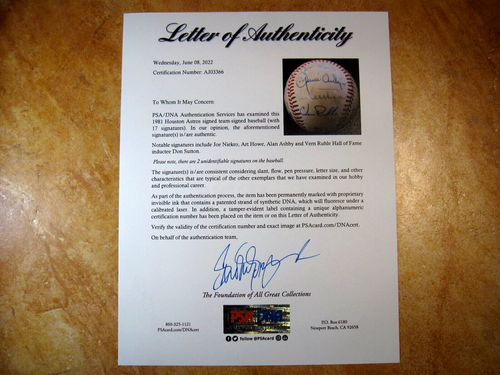 Letter of Authenticity
Wednesday, June 08, 2022
Certification Number: AJ03366
To Whom It May Concern:
PSA/DNA Authentication Services has examined this
1981 Houston Astros signed team-signed baseball (with
17 signatures). In our opinion, the aforementioned
signature(s) is/are authentic.
Notable signatures include Joe Niekro, Art Howe, Alan Ashby and Vern Ruhle Hall of Fame
inductee Don Sutton.
Please note, there are 2 unidentifiable signatures on the baseball.
The signature(s) is/are consistent considering slant, flow, pen pressure, letter size, and other
characteristics that are typical of the other exemplars that we have examined in our hobby
and professional career.
As part of the authentication process, the item has been permanently marked with proprietary
invisible ink that contains a patented strand of synthetic DNA, which will fluoresce under a
calibrated laser. In addition, a tamper-evident label containing a unique alphanumeric
certification number has been placed on the item or on this Letter of Authenticity.
Verify the validity of the certification number and exact image at PSAcard.com/DNAcert.
On behalf of the authentication team,
The Foundation of All Great Collections
PSA DNA
800-325-1121
PSAcard.com/DNAcert
follow @PSAcard
P.O. Box 6180
Newport Beach, CA 92658